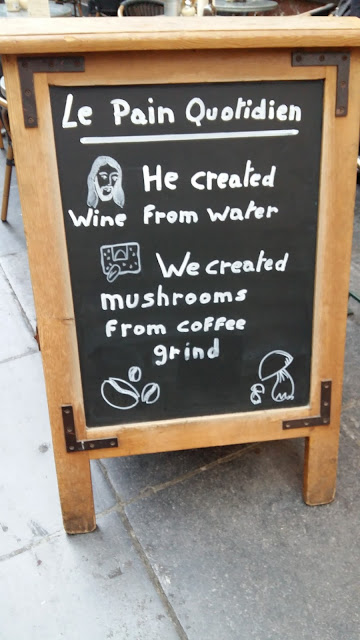 Le Pain Quotidien
He created
Wine From water
We created
mushrooms
From coffee
grind